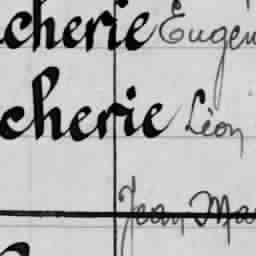 cherie Eugèn
cherie Léon
Jean Ma